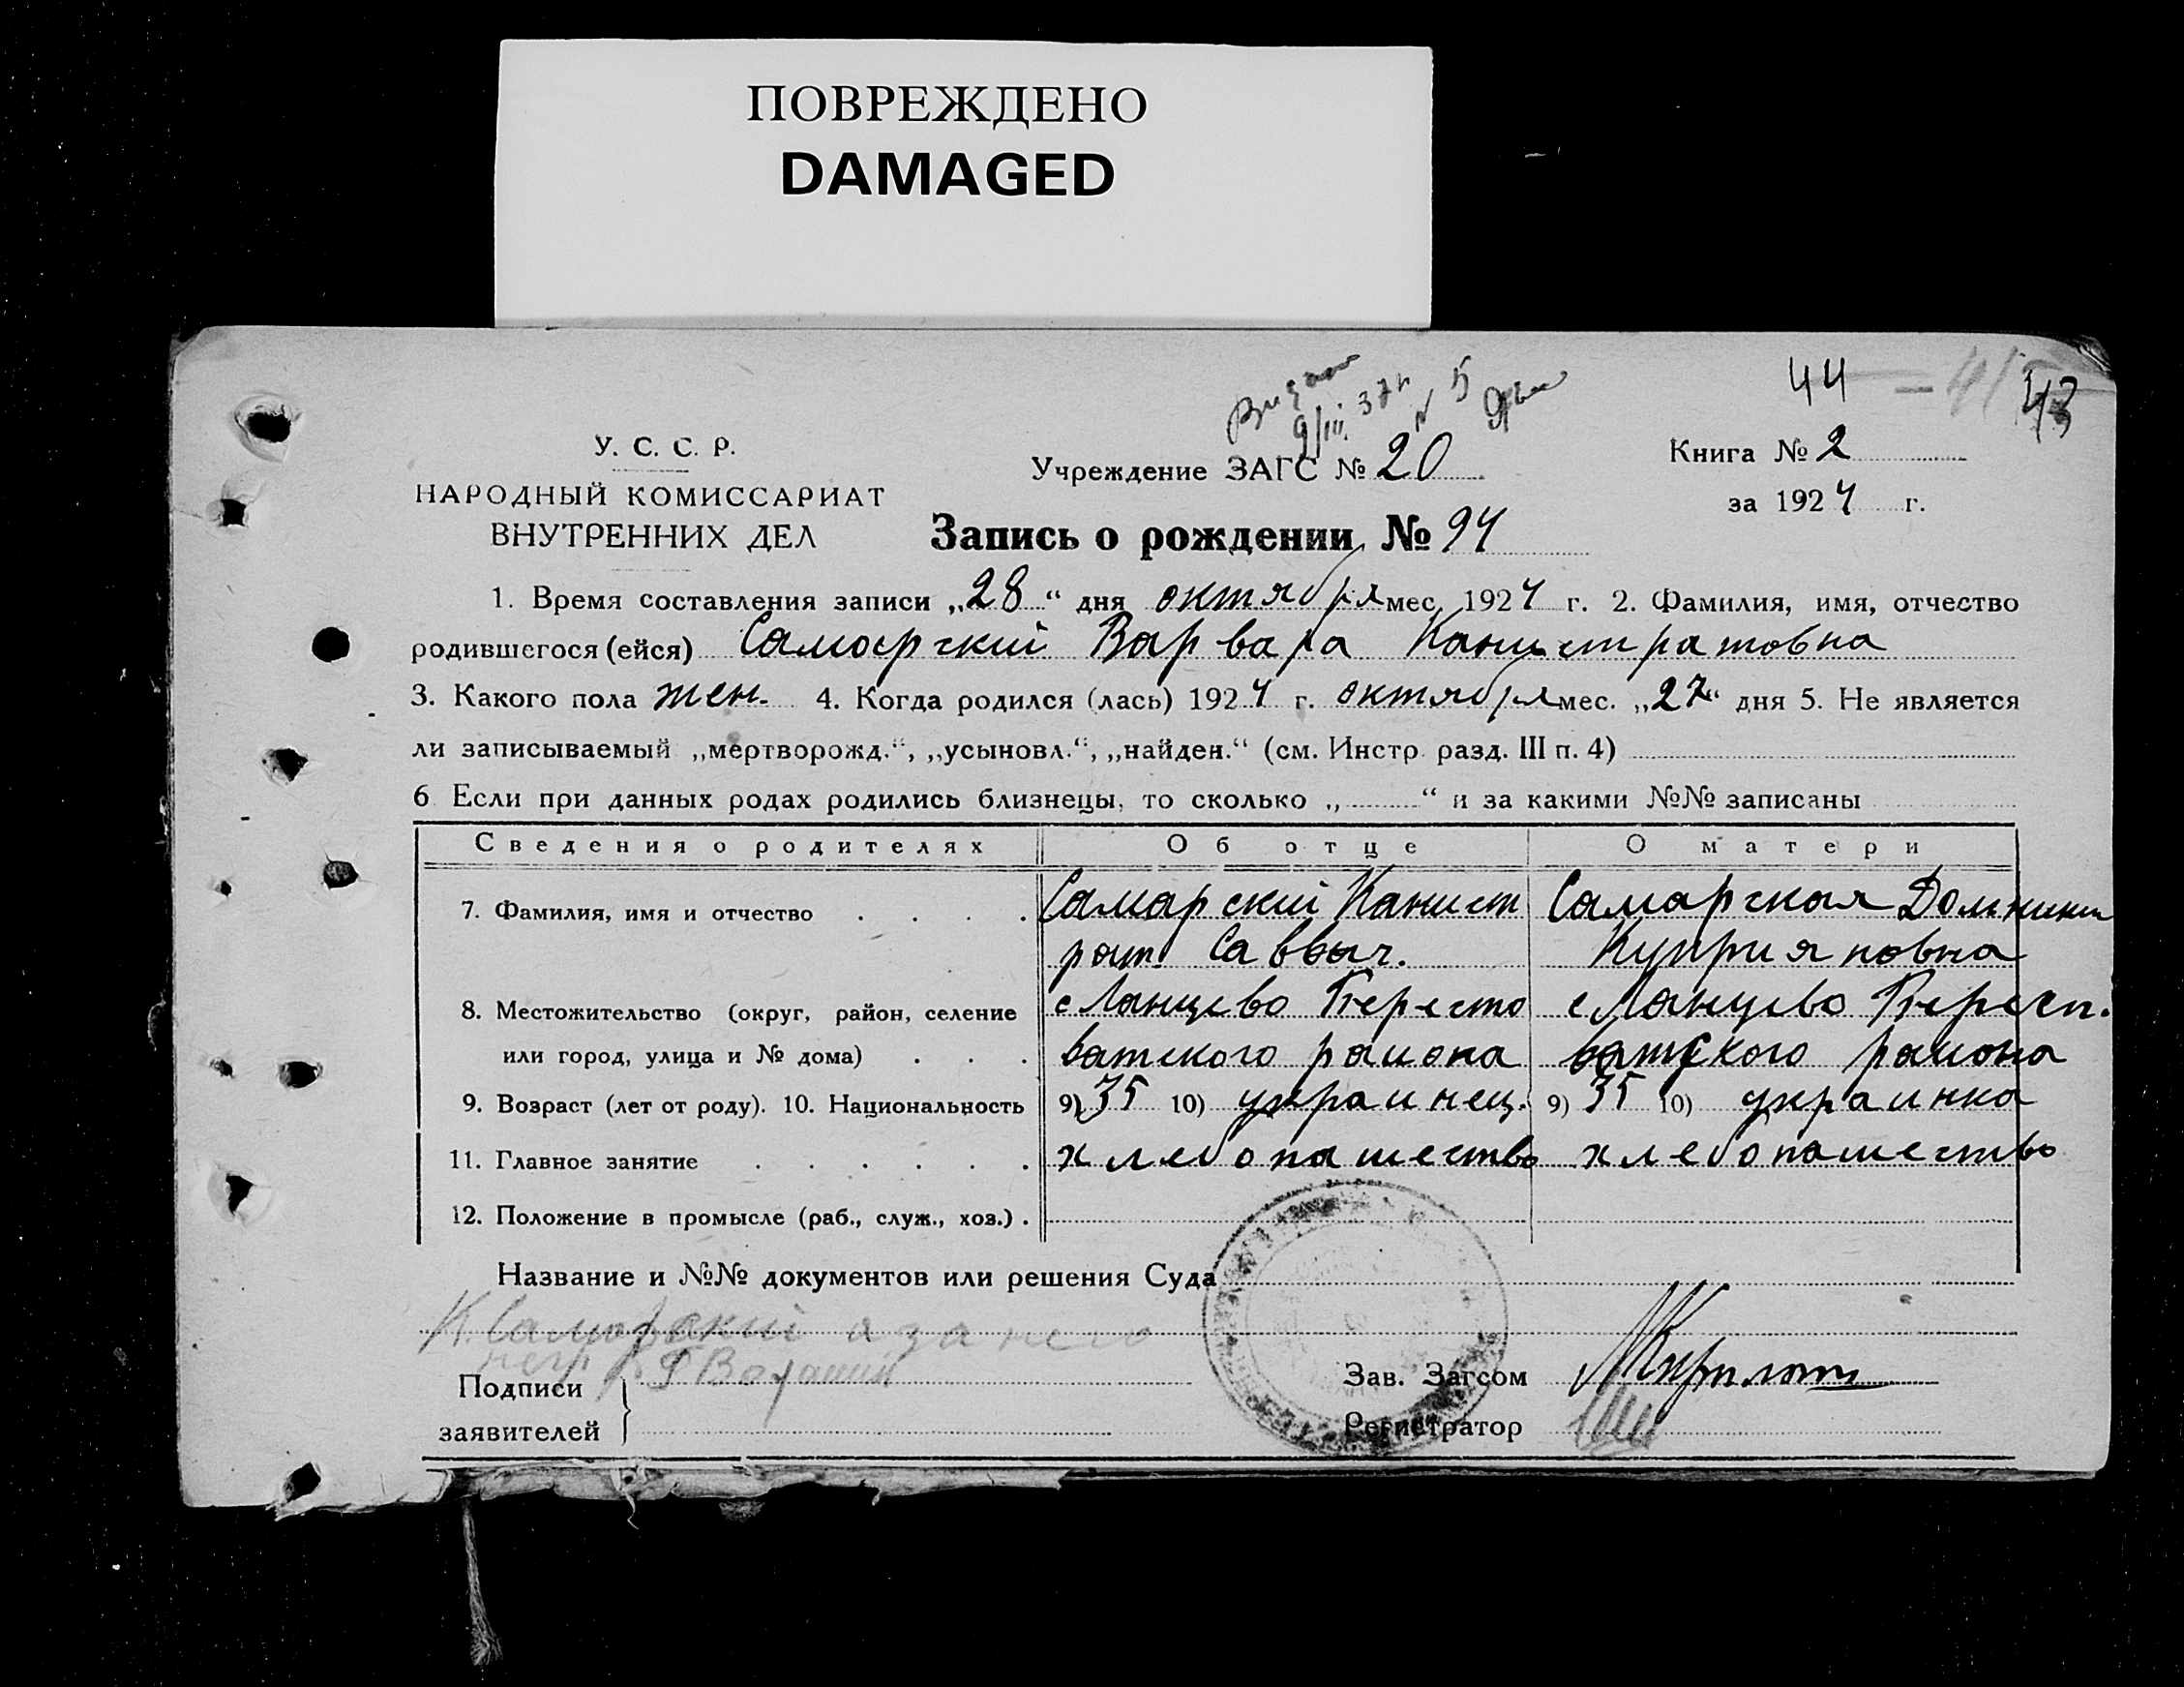 ПОВРЕЖДЕНО
DAMAGED
44 43
9/III 37 г. № 5
У. С. С. Р.
НАРОДНЫЙ КОМИССАРИАТ
ВНУТРЕННИХ ДЕЛ
Учреждение ЗАГС № 20
Книга № 2
за 1924 г.
Запись о рождении № 94
1. Время составления записи „28“ дня октября мес. 1924 г. 2. Фамилия, имя, отчество
родившегося (ейся) Самарский Варвара Канистратовна
3. Какого пола жен. 4. Когда родился (лась) 1924 г. октября мес. „27“ дня 5. Не является
ли записываемый „мертворожд.“, „усыновл.“, „найден.“ (см. Инстр. разд. III п. 4)
6. Если при данных родах родились близнецы, то сколько „ “ и за какими №№ записаны
Сведения о родителях Об отце О матери
7. Фамилия, имя и отчество . . . . Самарский Канист Самарская Домникия
рат. Саввыч. Куприяновна
8. Местожительство (округ, район, селение с Ланцево Бересто с Ланцево Берест.
или город, улица и № дома) . . . ватского района ватского района
9. Возраст (лет от роду). 10. Национальность 9) 35 10) украинец. 9) 35 10) украинка
11. Главное занятие . . . . . . хлебопашество хлебопашество
12. Положение в промысле (раб., служ., хоз.) .
Название и №№ документов или решения Суда
К Самарский а за него
Подписи
заявителей
Зав. Загсом
Регистратор